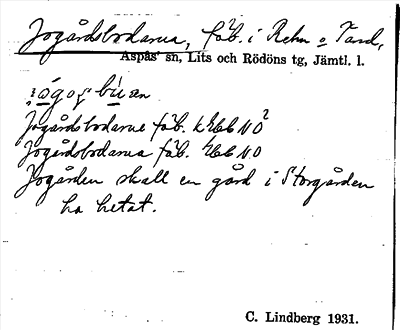 Jogårdsbodarna, fäb. i Rehn o Tand,
Aspås' sn, Lits och Rödöns tg, Jämtl. l.
Jogårdsbodarne fäb. NO²
Jogårdsbodarna fäb. NO
Jogården skall en gård i Storgården
ha hetat.
C. Lindberg 1931.